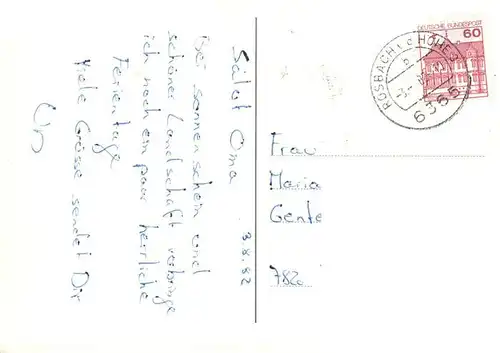 Salut Oma
3.8.82
Bei sonnenschein und
schöner Landschaft verbringe
ich noch ein paar herrliche
Ferientage
Viele Grüsse sendet Dir
Frau
Maria
Gente
782
DEUTSCHE BUNDESPOST
60
ROSBACH v.d. HÖHE
6365